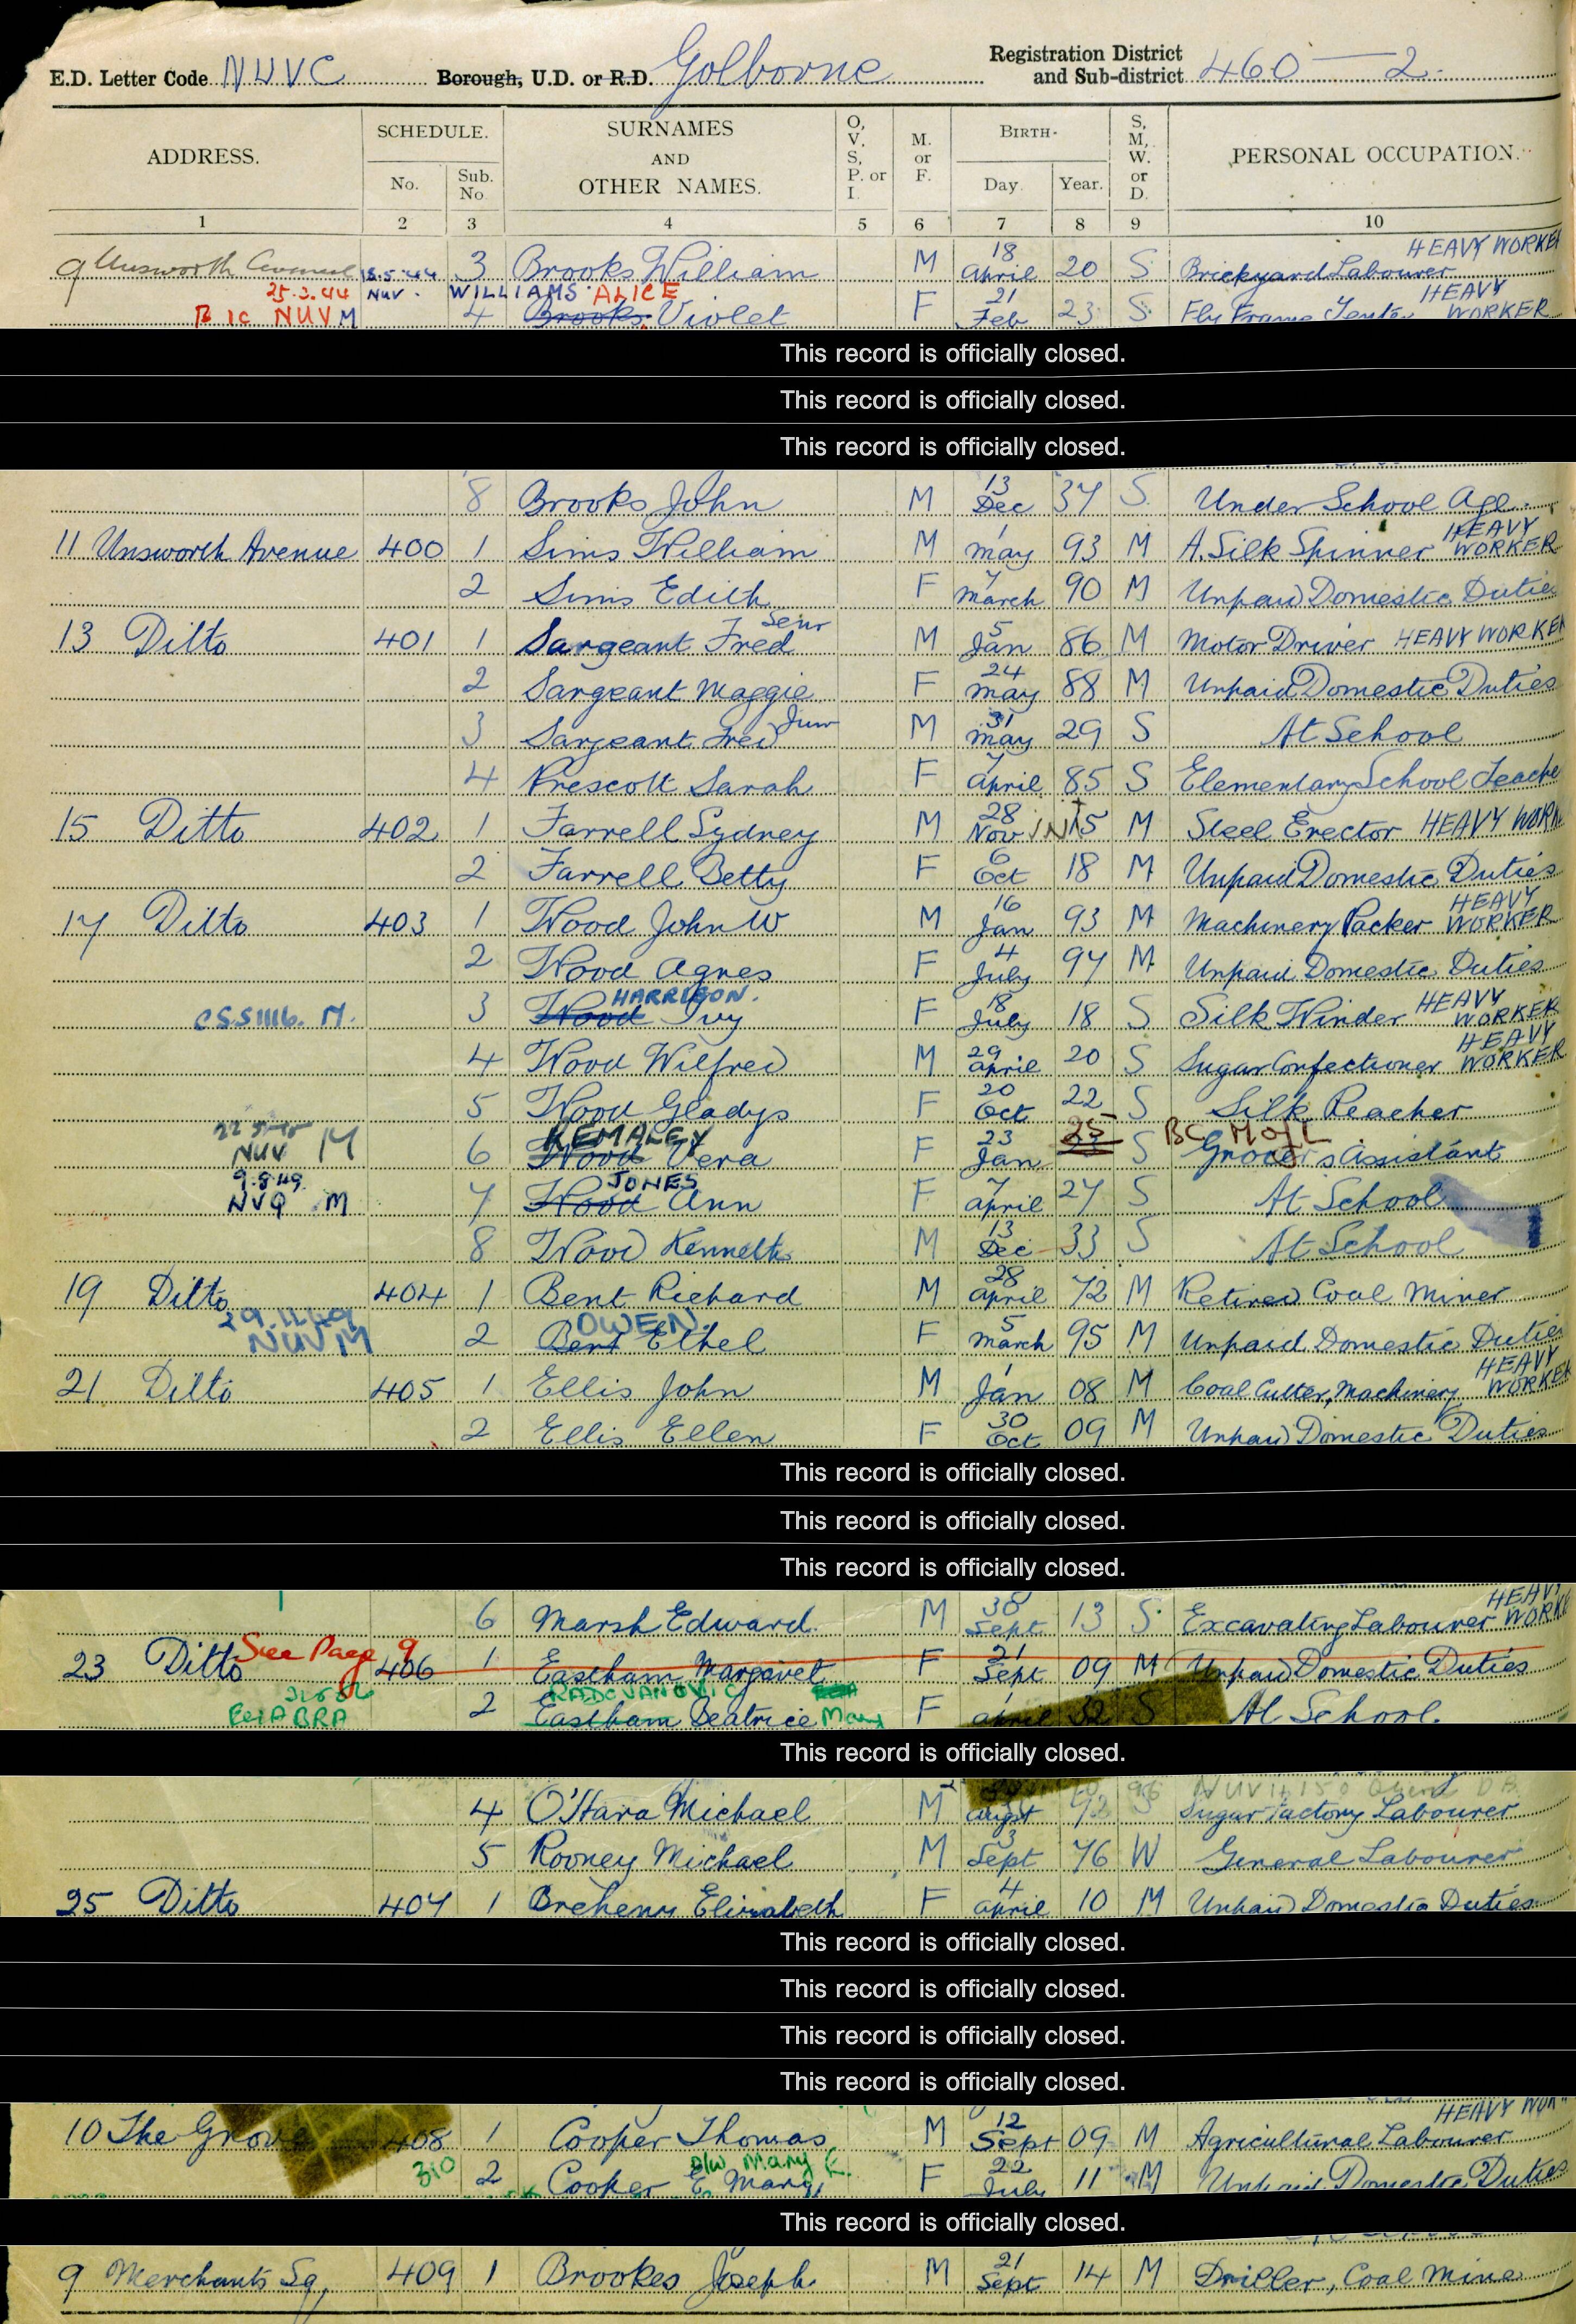 E.D. Letter Code NUVC Borough, U.D. or R.D. Golborne Registration District and Sub-district 460 — 2.
ADDRESS. SCHEDULE. No. Sub. No. SURNAMES AND OTHER NAMES. O, V, S, P. or I. M. or F. BIRTH- Day. Year. S, M, W. or D. PERSONAL OCCUPATION.
1 2 3 4 5 6 7 8 9 10
9 Unsworth Avenue 3 Brooks William M 18 April 20 S Brickyard Labourer HEAVY WORKER
18.5.44 NUV. WILLIAMS ALICE
25.3.44 B IC NUV M 4 Brooks Violet F 21 Feb 23 S Fly Frame Tenter HEAVY WORKER
This record is officially closed.
This record is officially closed.
This record is officially closed.
8 Brooks John M 13 Dec 37 S Under School Age
11 Unsworth Avenue 400 1 Sims William M 1 May 93 M A. Silk Spinner HEAVY WORKER
2 Sims Edith F 7 March 90 M Unpaid Domestic Duties
13 Ditto 401 1 Sargeant Fred Senr M 5 Jan 86 M Motor Driver HEAVY WORKER
2 Sargeant Maggie F 24 May 88 M Unpaid Domestic Duties
3 Sargeant Fred Junr M 31 May 29 S At School
4 Prescott Sarah F 7 April 85 S Elementary School Teache
15 Ditto 402 1 Farrell Sydney M 28 Nov 15 M Steel Erector HEAVY WORK
2 Farrell Betty F 6 Oct 18 M Unpaid Domestic Duties
17 Ditto 403 1 Wood John W M 16 Jan 93 M Machinery Packer HEAVY WORKER
2 Wood Agnes F 4 July 97 M Unpaid Domestic Duties
CSS1116. M. 3 Wood HARRISON. Ivy F 18 July 18 S Silk Winder HEAVY WORKER
4 Wood Wilfred M 29 April 20 S Sugar Confectioner HEAVY WORKER
5 Wood Gladys F 20 Oct 22 S Silk Reacher
NUV M 6 Wood KEMALEY Vera F 23 Jan 25 S BC MofL Grocer's Assistant
9.8.49. NVQ M 7 Wood JONES Ann F 7 April 27 S At School
8 Wood Kenneth M 13 Dec 33 S At School
19 Ditto 404 1 Bent Richard M 28 April 72 M Retired Coal Miner
29.11.49 NUV M 2 Bent OWEN. Ethel F 5 March 95 M Unpaid Domestic Duties
21 Ditto 405 1 Ellis John M 1 Jan 08 M Coal Cutter, Machinery HEAVY WORKER
2 Ellis Ellen F 30 Oct 09 M Unpaid Domestic Duties
This record is officially closed.
This record is officially closed.
This record is officially closed.
6 Marsh Edward M 30 Sept 13 S Excavating Labourer HEAVY WORKE
23 Ditto See Page 9 406 1 Eastham Margaret F 21 Sept 09 M Unpaid Domestic Duties
RADOVANOVIC
2 Eastham Beatrice Mary F 1 April 32 S At School.
This record is officially closed.
4 O'Hara Michael M Augst S Sugar Factory Labourer
5 Rooney Michael M 3 Sept 76 W General Labourer
25 Ditto 407 1 Breheny Elizabeth F 4 April 10 M Unpaid Domestic Duties
This record is officially closed.
This record is officially closed.
This record is officially closed.
This record is officially closed.
10 The Grove 408 1 Cooper Thomas M 12 Sept 09 M Agricultural Labourer HEAVY WOR
310 2 Cooper E Mary o/w Mary E. F 22 July 11 M Unpaid Domestic Duties
This record is officially closed.
9 Merchants Sq, 409 1 Brookes Joseph M 21 Sept 14 M Driller, Coal Mine